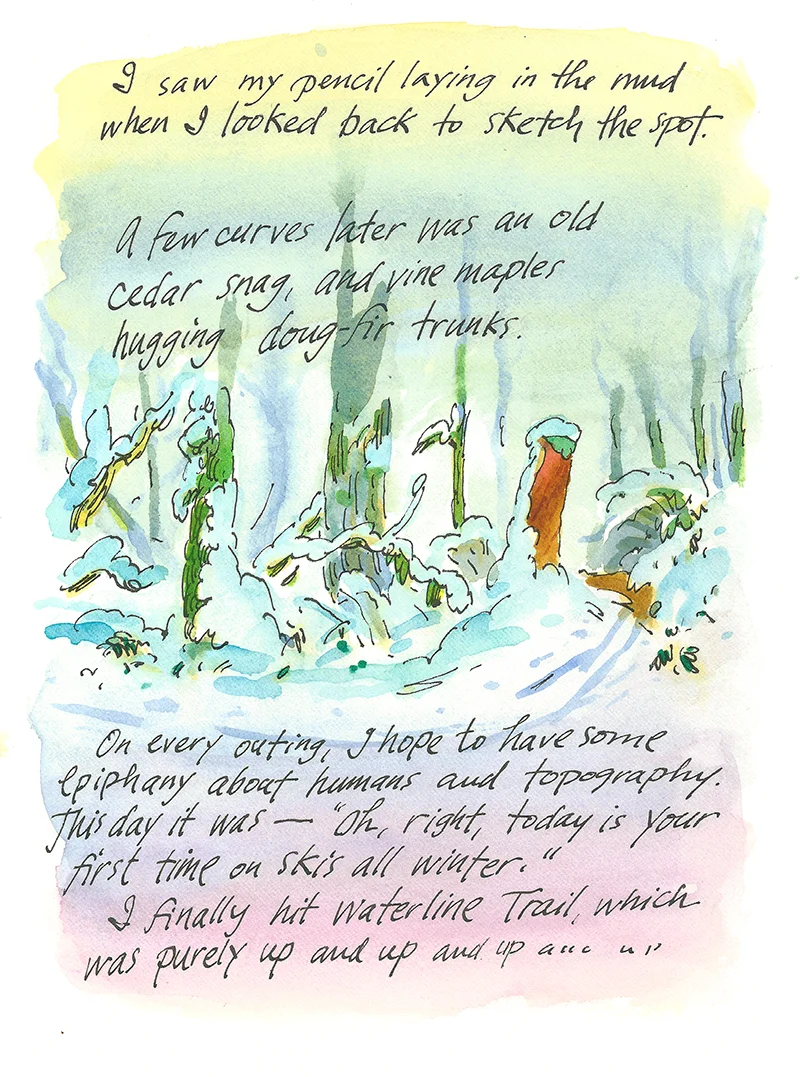 I saw my pencil laying in the mud
when I looked back to sketch the spot.
A few curves later was an old
cedar snag, and vine maples
hugging doug-fir trunks.
On every outing, I hope to have some
epiphany about humans and topography.
This day it was — "Oh, right, today is your
first time on skis all winter."
I finally hit Waterline Trail, which
was purely up and up and up and up